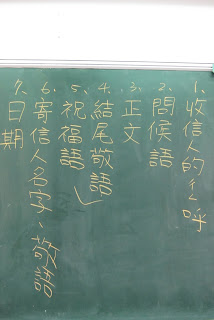 1、收信人的ㄔㄥ呼
2、問候語
3、正文
4、結尾敬語
5、祝福語
6、寄信人名字、敬語.
7、日期